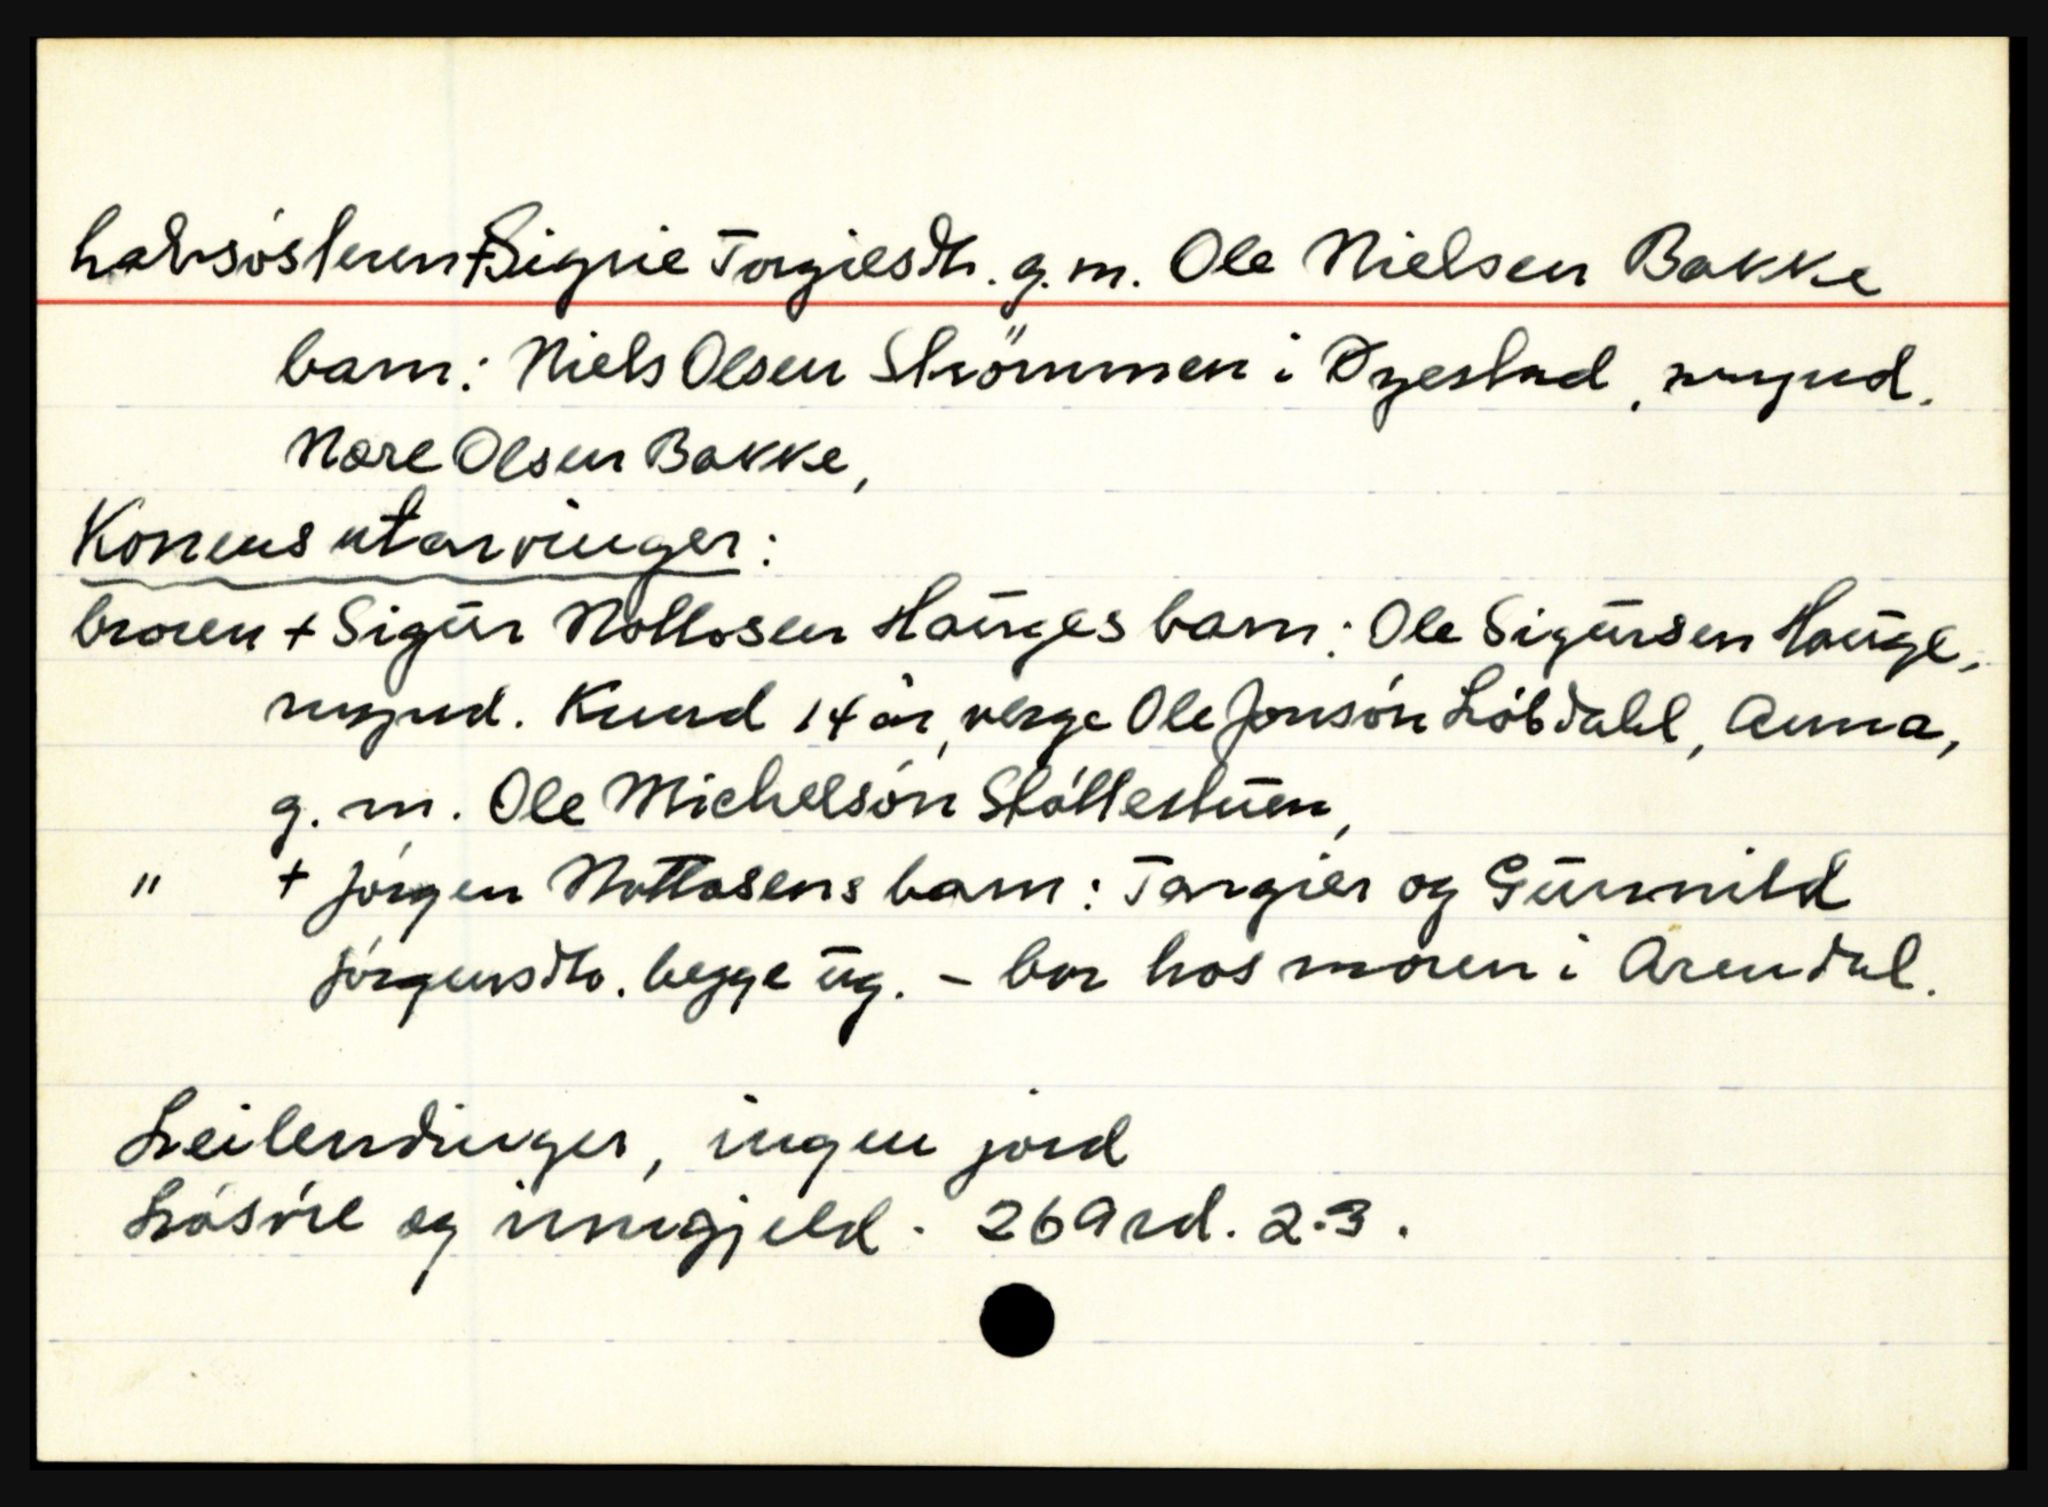 halvsøsteren + Signe Torgiesdtr. g.m. Ole Nielsen Bakke
barn: Niels Olsen Strömmen i Øyestad, mynd.
Nare Olsen Bakke,
Konens utarvinger:
broren + Sigūr Nottosen Haūges barn: Ole Sigūrsen Haūge,
mynd. Knud 14 år, verge Ole Jonsón Lóbdahl, Anna,
g.m. Ole Michelsón Stóllestūen,
" + Jórgen Nottosens barn: Torgier og Gūnnild
Jórgensdtr. begge ūg. - bor hos moren i Arendal.
Leilendinger, ingen jord
Lósóre og inngjeld. 269 rd. 2.3.